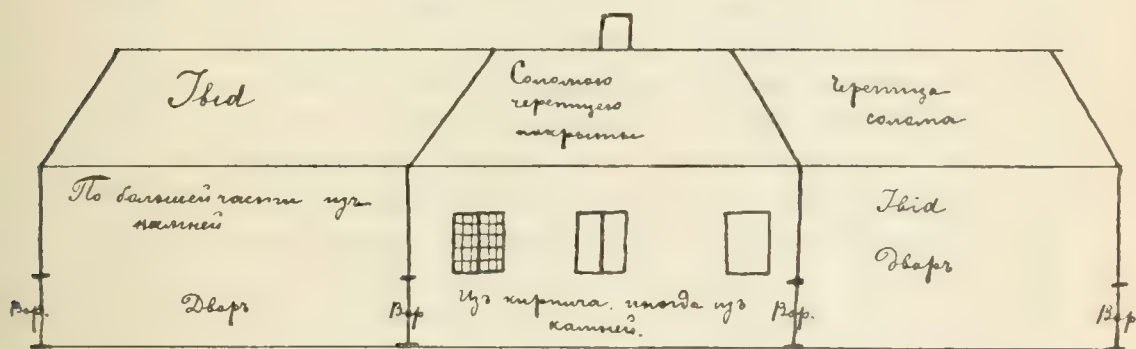 Ibid
Соломою
черепицею
покрыты
Черепица
солома
По большей части изъ
камней
Ibid
Дворъ
Вор.
Дворъ
Вор.
Изъ кирпича, иногда изъ
камней.
Вор.
Вор.